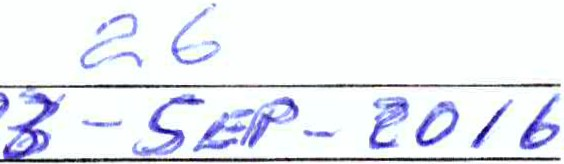 26
23-SEP-2016